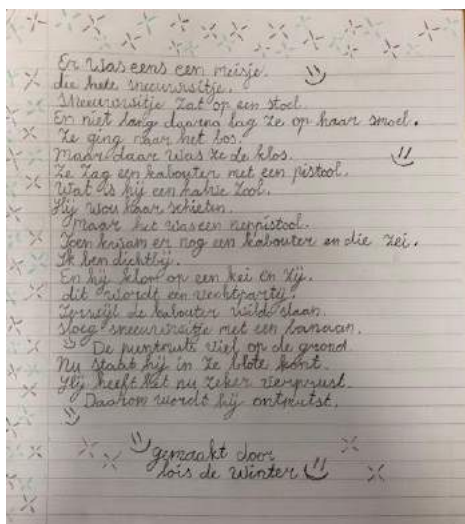 Er was eens een meisje.
die hete sneeuwwitje.
Sneeuwwitje zat op een stoel.
En niet lang daarna lag ze op haar smoel.
Ze ging naar het bos.
Maar daar was ze de klos.
Ze zag een kabouter met een pistool.
Wat is hij een halve zool.
Hij wou haar schieten.
Maar het was een neppistool.
Toen kwam er nog een kabouter en die zei.
Ik ben dichtbij.
En hij klom op een kei en zij.
dit wordt een vechtparty.
Terwijl de kabouter wilde slaan.
sloeg sneeuwwitje met een banaan.
De puntmuts viel op de grond.
Nu staat hij in ze blote kont.
Hij heeft het nu zeker verprust.
Daarom wordt hij ontmutst.
gemaakt door
loïs de Winter